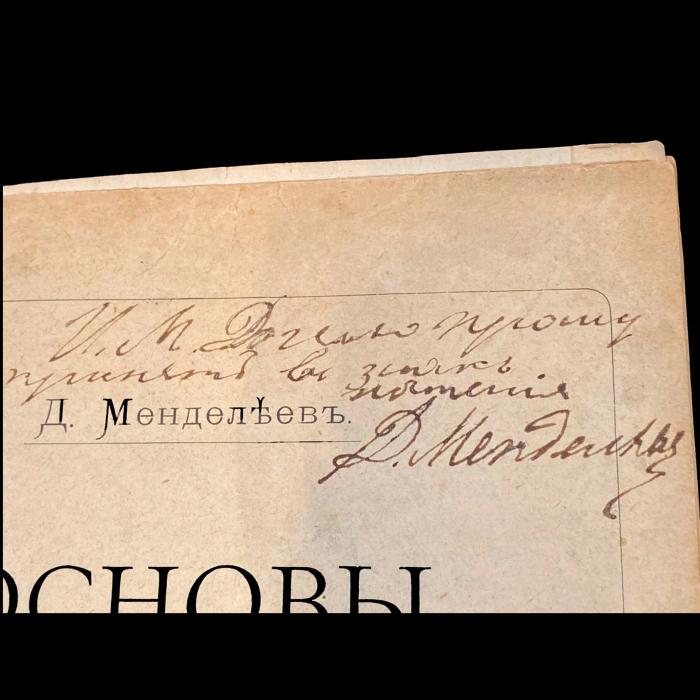 И. М. Догелю прошу
принять въ знакъ
почтенія
Д. Менделѣевъ.
Д. Менделѣевъ
ОСНОВЫ